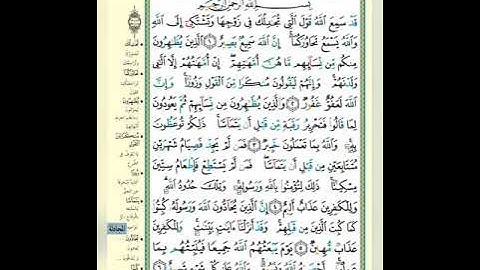 بِسْمِ اللَّهِ الرَّحْمَٰنِ الرَّحِيمِ
قَدْ سَمِعَ اللَّهُ قَوْلَ الَّتِي تُجَٰدِلُكَ فِي زَوْجِهَا وَتَشْتَكِي إِلَى اللَّهِ
وَاللَّهُ يَسْمَعُ تَحَاوُرَكُمَا إِنَّ اللَّهَ سَمِيعٌ بَصِيرٌ ١ الَّذِينَ يُظَٰهِرُونَ
مِنكُم مِّن نِّسَآئِهِم مَّا هُنَّ أُمَّهَٰتِهِمْ إِنْ أُمَّهَٰتُهُمْ إِلَّا الَّٰٓـِٔي
وَلَدْنَهُمْ وَإِنَّهُمْ لَيَقُولُونَ مُنكَرًا مِّنَ الْقَوْلِ وَزُورًا وَإِنَّ
اللَّهَ لَعَفُوٌّ غَفُورٌ ٢ وَالَّذِينَ يُظَٰهِرُونَ مِن نِّسَآئِهِمْ ثُمَّ يَعُودُونَ
لِمَا قَالُوا فَتَحْرِيرُ رَقَبَةٍ مِّن قَبْلِ أَن يَتَمَآسَّا ذَٰلِكُمْ تُوعَظُونَ
بِهِ وَاللَّهُ بِمَا تَعْمَلُونَ خَبِيرٌ ٣ فَمَن لَّمْ يَجِدْ فَصِيَامُ شَهْرَيْنِ
مُتَتَابِعَيْنِ مِن قَبْلِ أَن يَتَمَآسَّا فَمَن لَّمْ يَسْتَطِعْ فَإِطْعَامُ سِتِّينَ
مِسْكِينًا ذَٰلِكَ لِتُؤْمِنُوا بِاللَّهِ وَرَسُولِهِ وَتِلْكَ حُدُودُ اللَّهِ
وَلِلْكَٰفِرِينَ عَذَابٌ أَلِيمٌ ٤ إِنَّ الَّذِينَ يُحَآدُّونَ اللَّهَ وَرَسُولَهُ كُبِتُوا
كَمَا كُبِتَ الَّذِينَ مِن قَبْلِهِمْ وَقَدْ أَنزَلْنَآ ءَايَٰتٍ بَيِّنَٰتٍ وَلِلْكَٰفِرِينَ
عَذَابٌ مُّهِينٌ ٥ يَوْمَ يَبْعَثُهُمُ اللَّهُ جَمِيعًا فَيُنَبِّئُهُم بِمَا
عَمِلُوا أَحْصَىٰهُ اللَّهُ وَنَسُوهُ وَاللَّهُ عَلَىٰ كُلِّ شَيْءٍ شَهِيدٌ ٦
المجادلة